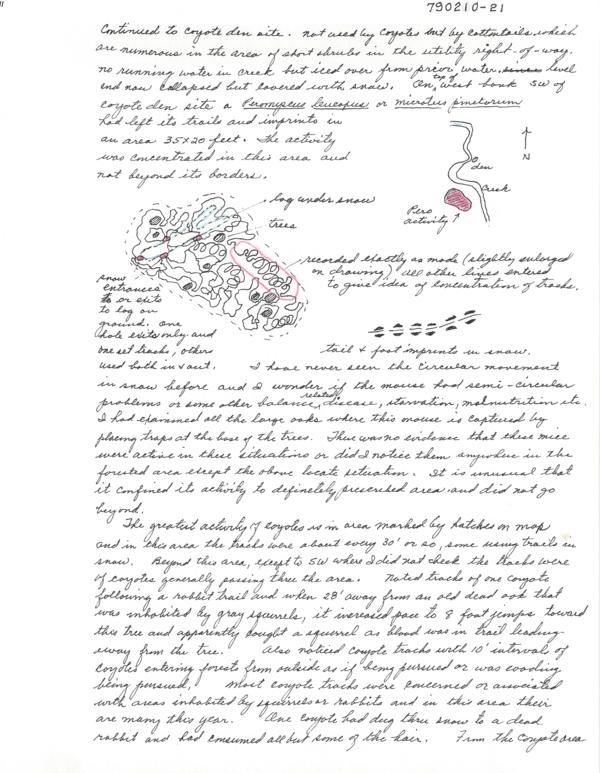 790210-21
Continued to coyote den site. not used by coyotes but by cottontails which
are numerous in the area of short shrubs in the utility right-of-way.
no running water in creek but iced over from prior water level
and now collapsed but covered with snow. On top of west bank SW of
coyote den site a Peromyscus leucopus or microtus pinetorum
had left its trails and imprints in
an area 35x20 feet. The activity
was concentrated in this area and
not beyond its borders.
N
den
Creek
Pero
activity
log under snow
trees
recorded exactly as made (slightly enlarged
on drawing) all other lines entered
to give idea of concentration of tracks.
snow
entrances
to or exits
to log on
ground. One
hole exits only and
one set tracks, others
used both in & out.
tail & foot imprints in snow.
I have never seen the circular movement
in snow before and I wonder if the mouse had semi-circular
problems or some other balance related disease, starvation, malnutrition etc.
I had examined all the large oaks where this mouse is captured by
placing traps at the base of the trees. There was no evidence that these mice
were active in these situations or did I notice them anywhere in the
forested area except the above locate situation. It is unusual that
it confined its activity to definitely prescribed area and did not go
beyond.
The greatest activity of coyotes is in area marked by hatches on map
and in this area the tracks were about every 30' or so, some using trails in
snow. Beyond this area, except to SW where I did not check the tracks were
of coyotes generally passing thru the area. Noted tracks of one coyote
following a rabbit trail and when 28' away from an old dead oak that
was inhabited by gray squirrels, it increased pace to 8 foot jumps toward
this tree and apparently caught a squirrel as blood was in trail leading
away from the tree. Also noticed coyote tracks with 10' intervals of
coyotes entering forest from outside as if being pursued or was avoiding
being pursued. Most coyote tracks were concerned or associated
with areas inhabited by squirrels or rabbits and in this area their
are many this year. One coyote had dug thru snow to a dead
rabbit and had consumed all but some of the hair. From the coyote area